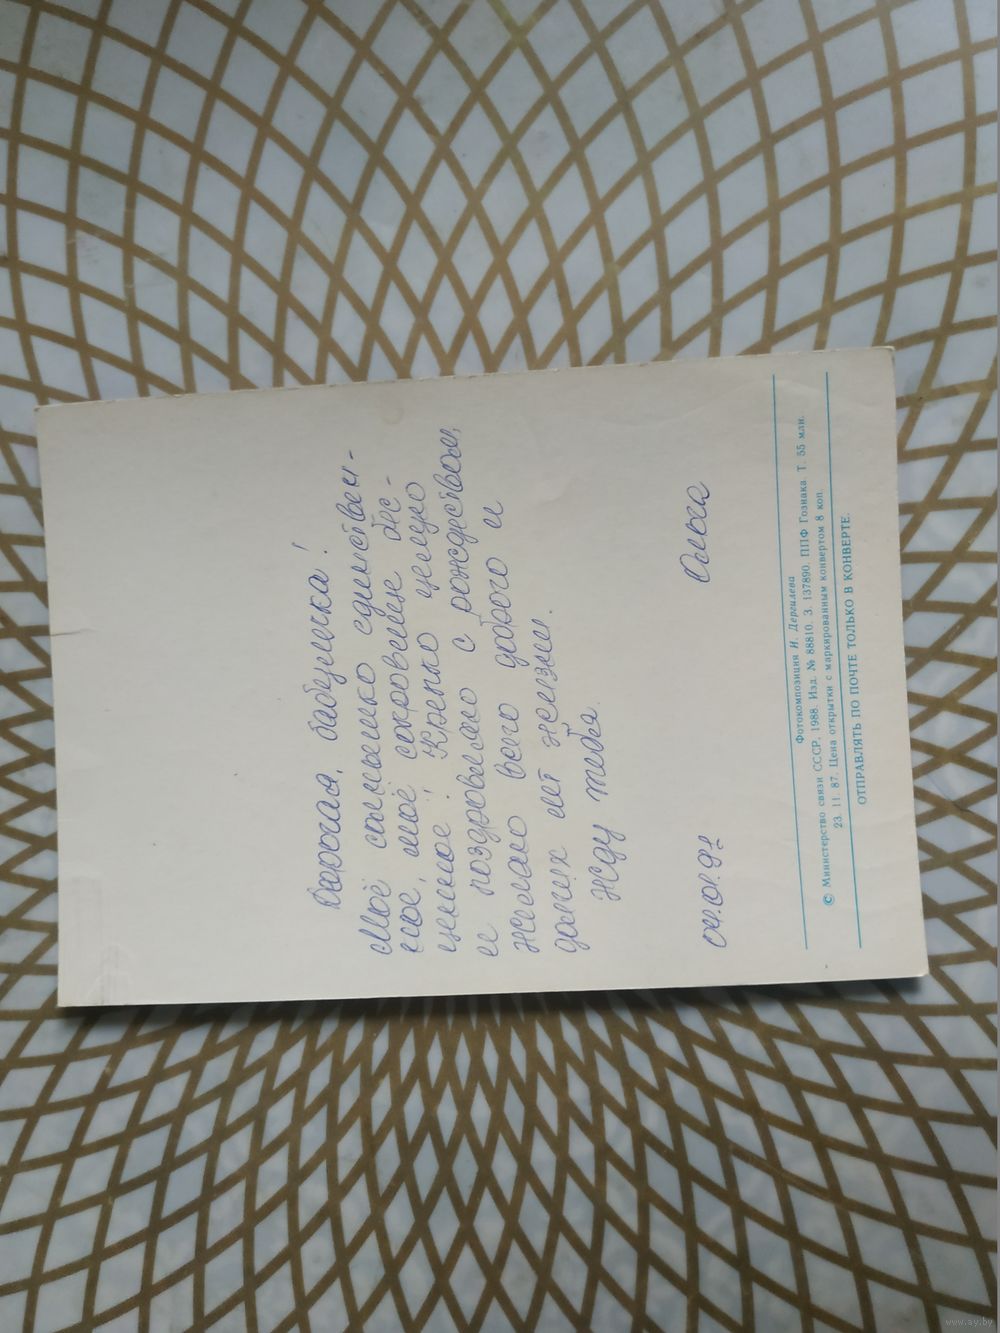 Дорогая бабулечка!
Моё солнышко единствен-
ное, моё сокровище бес-
ценное! Крепко целую
и поздравляю с рождеством,
желаю всего доброго и
долгих лет жизни.
Жду тебя.
Ольга
Фотокомпозиция И. Дергилева
© Министерство связи СССР, 1988. Изд. № 88810. З. 137890. ППФ Гознака. Т. 55 млн.
23. 11. 87. Цена открытки с маркированным конвертом 8 коп.
ОТПРАВЛЯТЬ ПО ПОЧТЕ ТОЛЬКО В КОНВЕРТЕ.
www.ay.by